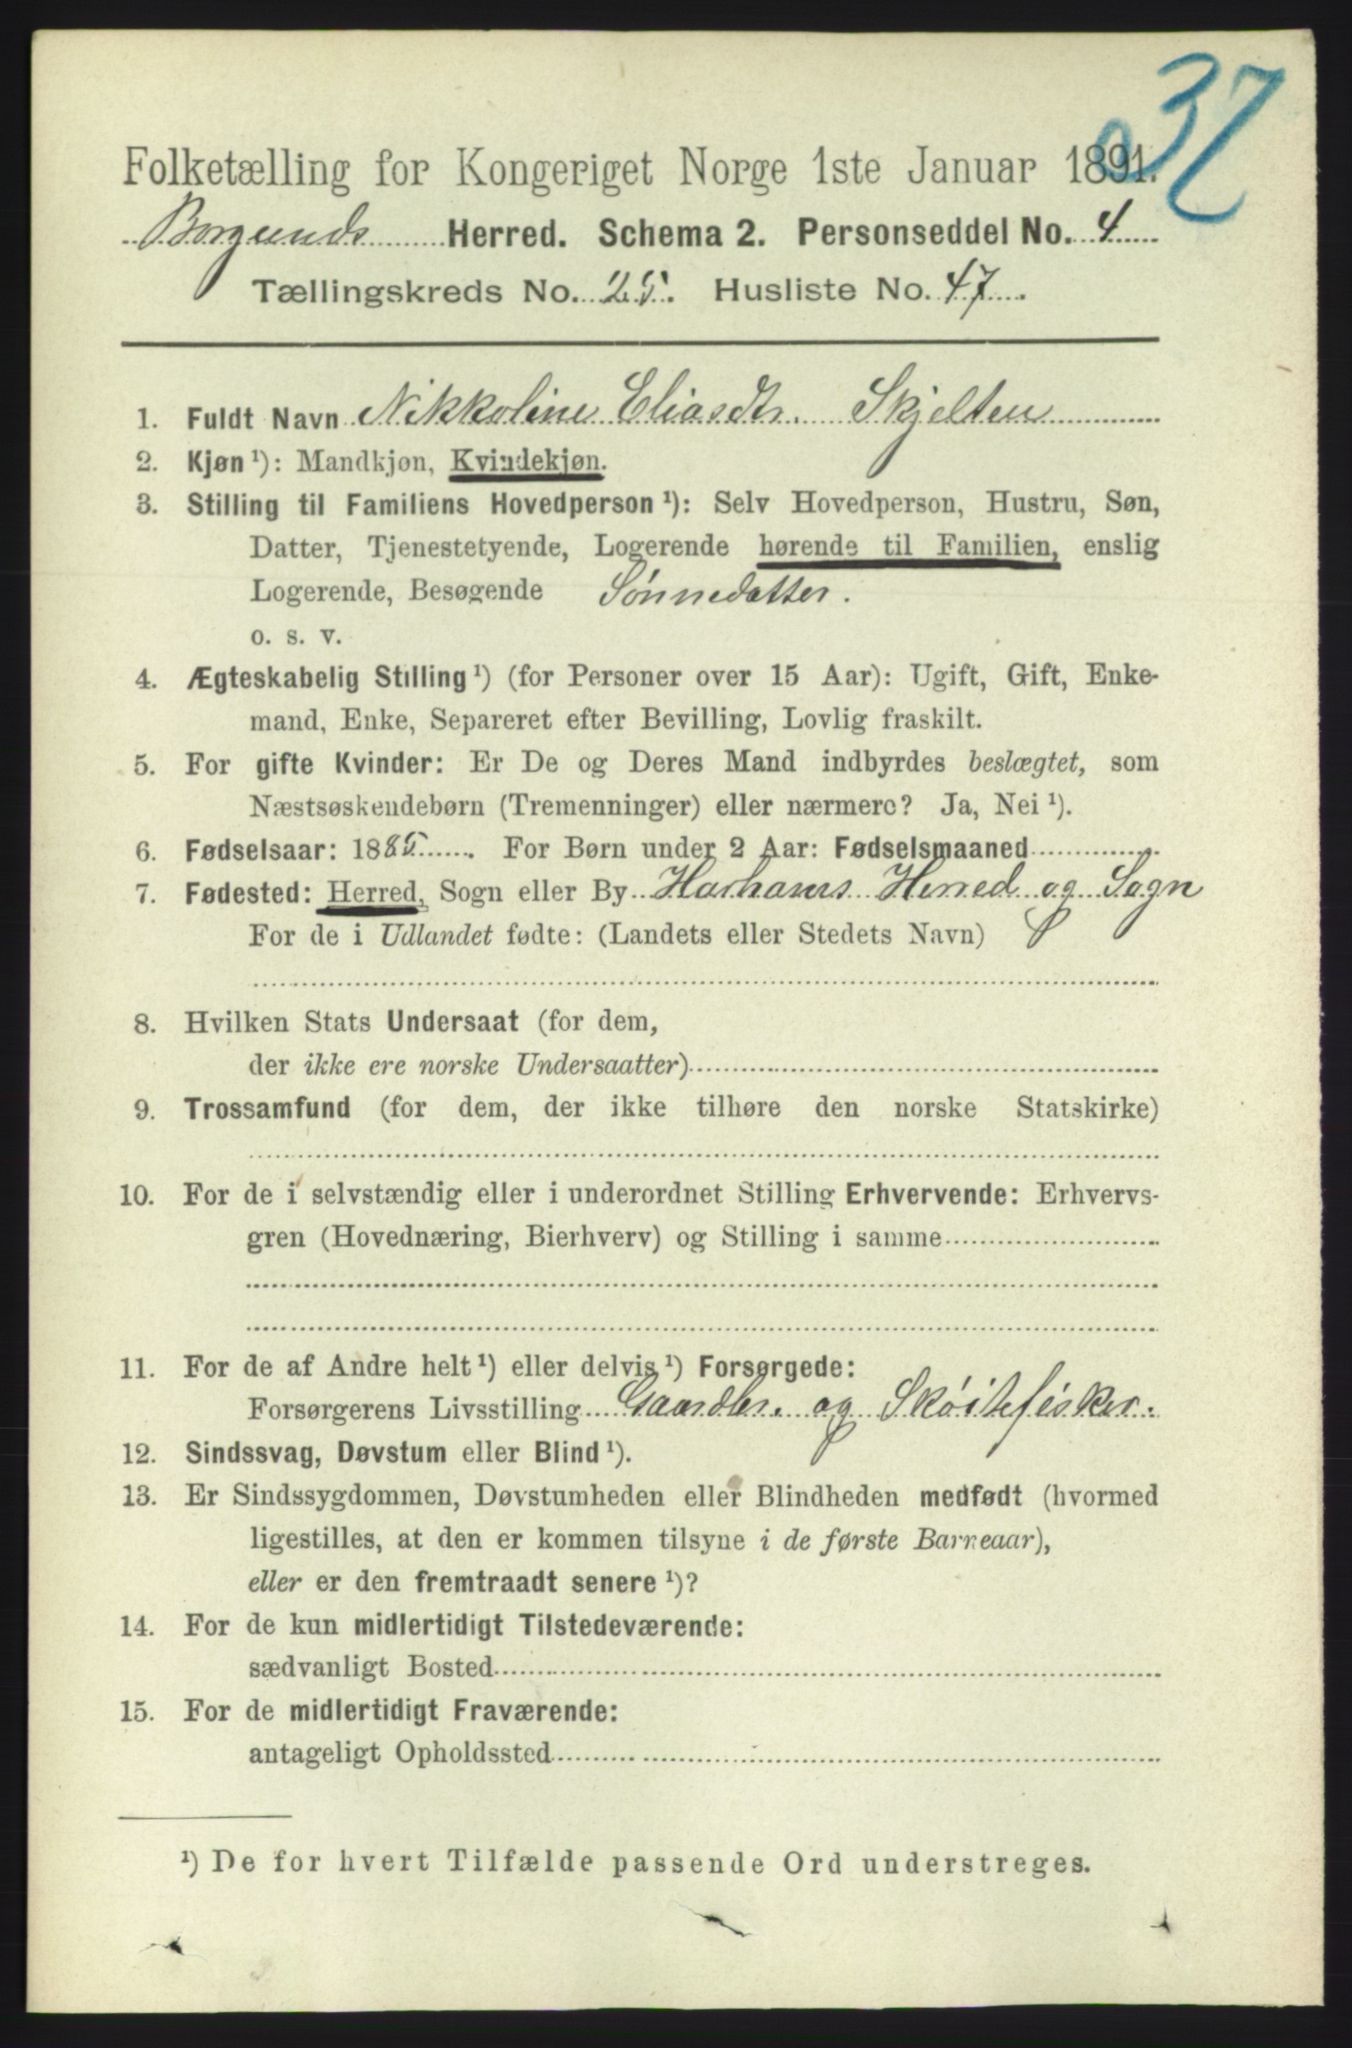 37
Folketælling for Kongeriget Norge 1ste Januar 1891.
Borgunds Herred. Schema 2. Personseddel No. 4
Tællingskreds No. 25. Husliste No. 47.
1. Fuldt Navn Nikkoline Eliasdtr. Skjelten
2. Kjøn ¹): Mandkjøn, Kvindekjøn.
3. Stilling til Familiens Hovedperson ¹): Selv Hovedperson, Hustru, Søn,
Datter, Tjenestetyende, Logerende hørende til Familien, enslig
Logerende, Besøgende Sønnedatter.
o. s. v.
4. Ægteskabelig Stilling ¹) (for Personer over 15 Aar): Ugift, Gift, Enke-
mand, Enke, Separeret efter Bevilling, Lovlig fraskilt.
5. For gifte Kvinder: Er De og Deres Mand indbyrdes beslægtet, som
Næstsøskendebørn (Tremenninger) eller nærmere? Ja, Nei ¹).
6. Fødselsaar: 1885. For Børn under 2 Aar: Fødselsmaaned
7. Fødested: Herred, Sogn eller By Harhams Herred og Sogn
For de i Udlandet fødte: (Landets eller Stedets Navn)
8. Hvilken Stats Undersaat (for dem,
der ikke ere norske Undersaatter)
9. Trossamfund (for dem, der ikke tilhøre den norske Statskirke)
10. For de i selvstændig eller i underordnet Stilling Erhvervende: Erhvervs-
gren (Hovednæring, Bierhverv) og Stilling i samme
11. For de af Andre helt ¹) eller delvis ¹) Forsørgede:
Forsørgerens Livsstilling Gaardbr. og Skøitefisker.
12. Sindssvag, Døvstum eller Blind ¹).
13. Er Sindssygdommen, Døvstumheden eller Blindheden medfødt (hvormed
ligestilles, at den er kommen tilsyne i de første Barneaar),
eller er den fremtraadt senere ¹)?
14. For de kun midlertidigt Tilstedeværende:
sædvanligt Bosted
15. For de midlertidigt Fraværende:
antageligt Opholdssted
¹) De for hvert Tilfælde passende Ord understreges.